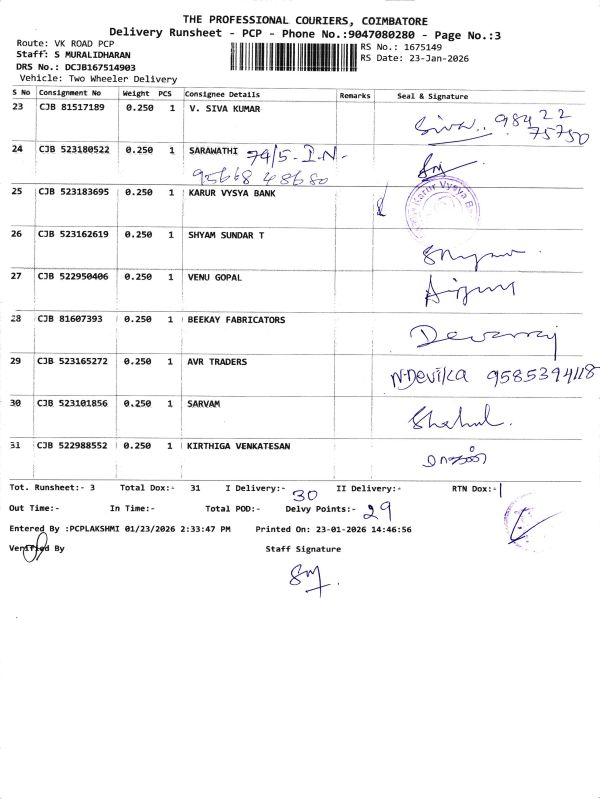 THE PROFESSIONAL COURIERS, COIMBATORE
Delivery Runsheet - PCP - Phone No.:9047080280 - Page No.:3
Route: VK ROAD PCP
Staff: S MURALIDHARAN
DRS No.: DCJB167514903
Vehicle: Two Wheeler Delivery
RS No.: 1675149
RS Date: 23-Jan-2026
S No Consignment No Weight PCS Consignee Details Remarks Seal & Signature
23 CJB 81517189 0.250 1 V. SIVA KUMAR Siva.. 98422
75750
24 CJB 523180522 0.250 1 SARAWATHI 74/5-I.N-
95668 48680
25 CJB 523183695 0.250 1 KARUR VYSYA BANK Karur Vysya
26 CJB 523162619 0.250 1 SHYAM SUNDAR T
27 CJB 522950406 0.250 1 VENU GOPAL
28 CJB 81607393 0.250 1 BEEKAY FABRICATORS Devarraj
29 CJB 523165272 0.250 1 AVR TRADERS N.Devika 9585394118
30 CJB 523101856 0.250 1 SARVAM
31 CJB 522988552 0.250 1 KIRTHIGA VENKATESAN
Tot. Runsheet:- 3 Total Dox:- 31 I Delivery:- 30 II Delivery:- RTN Dox:-
Out Time:- In Time:- Total POD:- Delvy Points:- 29
Entered By :PCPLAKSHMI 01/23/2026 2:33:47 PM Printed On: 23-01-2026 14:46:56
Verified By Staff Signature